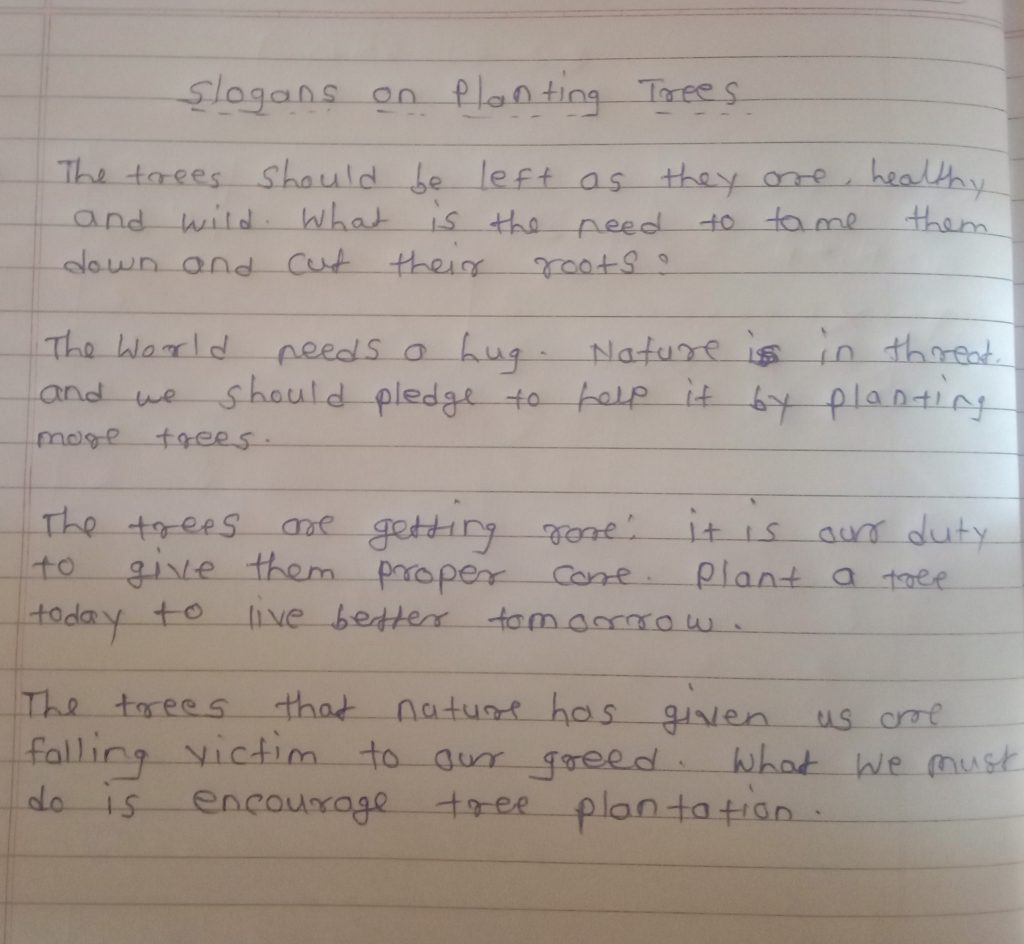 Slogans on Planting Trees
The trees should be left as they are, healthy
and wild. What is the need to tame them
down and cut their roots?
The World needs a hug. Nature is in threat.
and we should pledge to help it by planting
more trees.
The trees are getting rare: it is our duty
to give them proper care. Plant a tree
today to live better tomorrow.
The trees that nature has given us are
falling victim to our greed. What we must
do is encourage tree plantation.